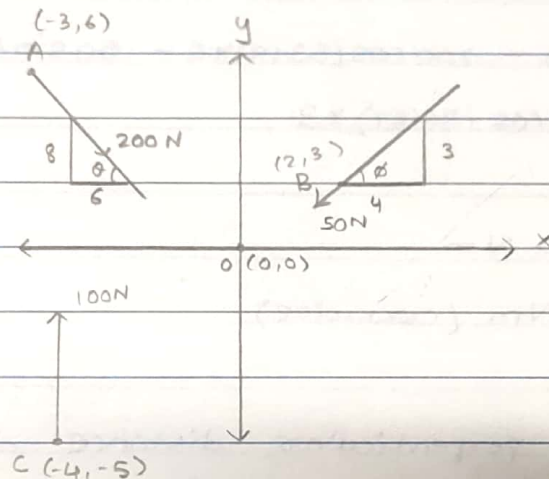 (-3,6)
A
y
200 N
8
θ
6
(2,3)
B
φ
3
4
50N
x
O (0,0)
100N
C (-4,-5)